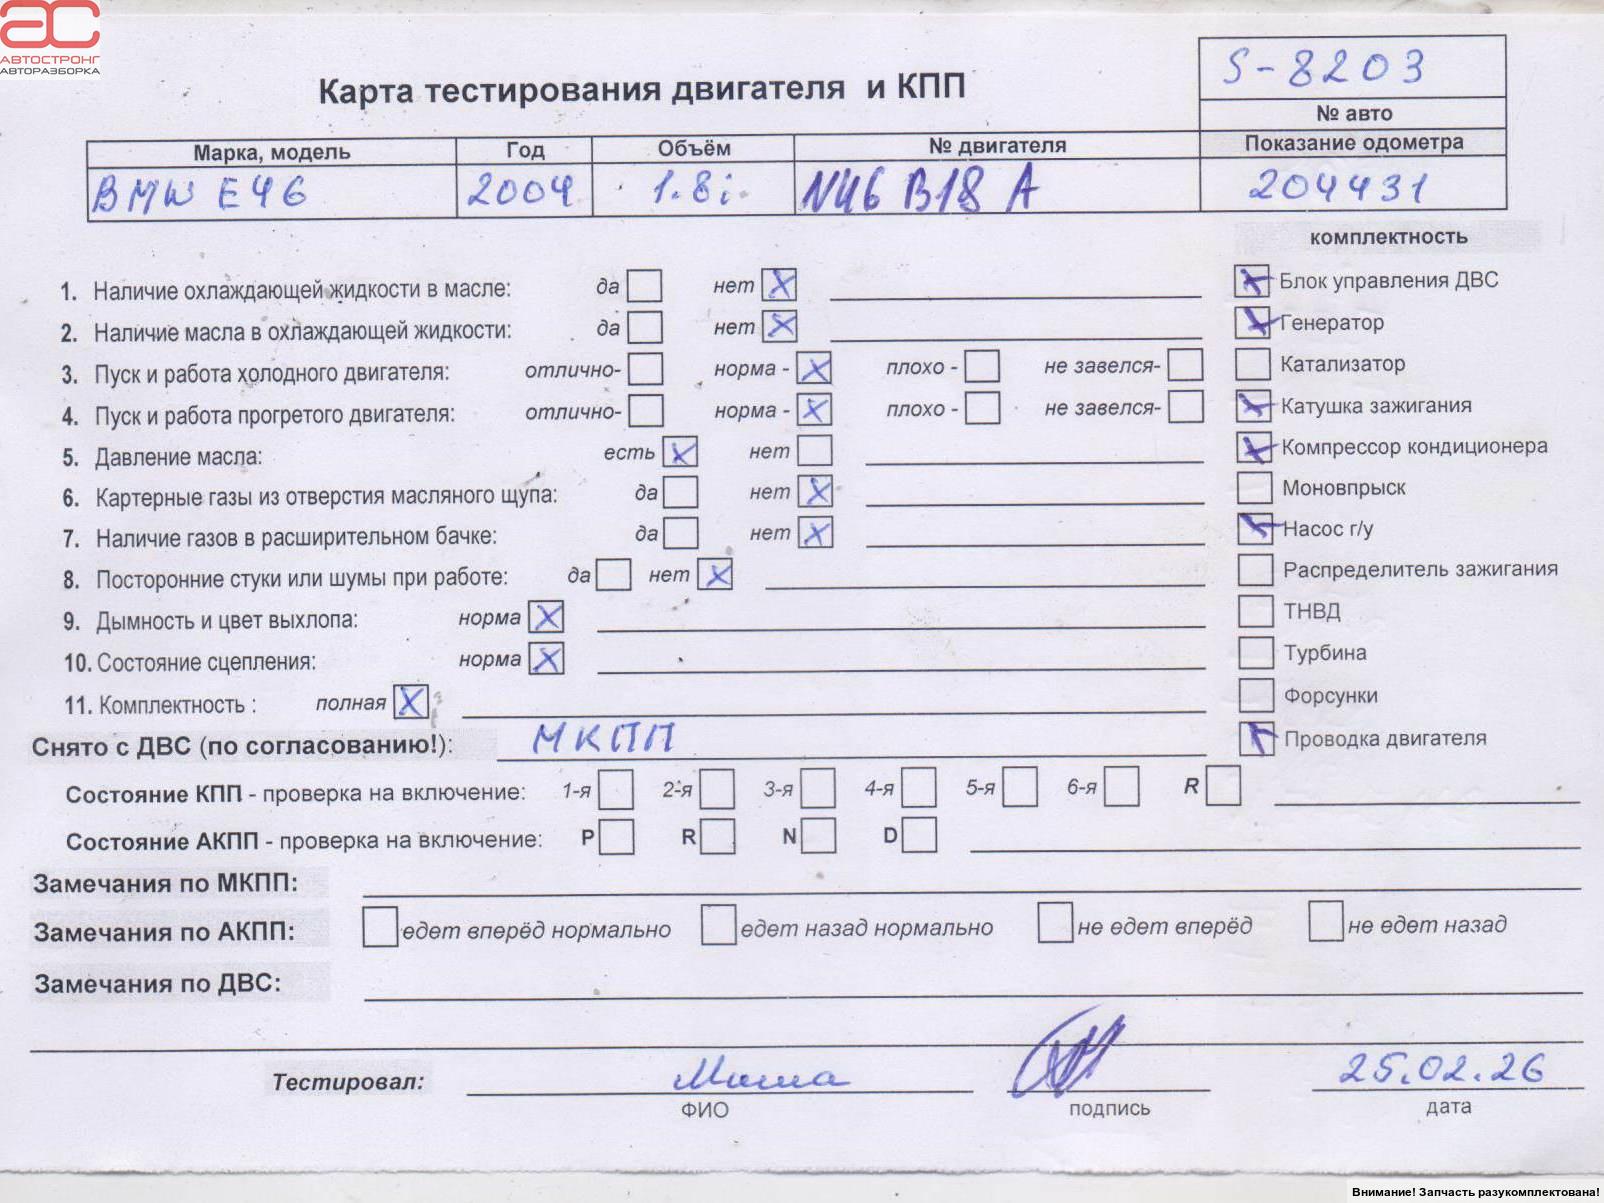 АС
АВТОСТРОНГ
АВТОРАЗБОРКА
S-8203
Карта тестирования двигателя и КПП
№ авто
Марка, модель Год Объём № двигателя Показание одометра
BMW E46 2004 1.8i. N46 B18 A 204431
комплектность
1. Наличие охлаждающей жидкости в масле: да нет X
Блок управления ДВС
2. Наличие масла в охлаждающей жидкости: да нет X
Генератор
3. Пуск и работа холодного двигателя: отлично- норма - X плохо - не завелся-
Катализатор
4. Пуск и работа прогретого двигателя: отлично- норма - X плохо - не завелся-
Катушка зажигания
5. Давление масла: есть X нет
Компрессор кондиционера
6. Картерные газы из отверстия масляного щупа: да нет X
Моновпрыск
7. Наличие газов в расширительном бачке: да нет X
Насос г/у
8. Посторонние стуки или шумы при работе: да нет X
Распределитель зажигания
9. Дымность и цвет выхлопа: норма X
ТНВД
10. Состояние сцепления: норма X
Турбина
11. Комплектность : полная X
Форсунки
Снято с ДВС (по согласованию!): МКПП
Проводка двигателя
Состояние КПП - проверка на включение: 1-я 2-я 3-я 4-я 5-я 6-я R
Состояние АКПП - проверка на включение: P R N D
Замечания по МКПП:
Замечания по АКПП: едет вперёд нормально едет назад нормально не едет вперёд не едет назад
Замечания по ДВС:
Тестировал: Миша 25.02.26
ФИО подпись дата
Внимание! Запчасть разукомплектована!